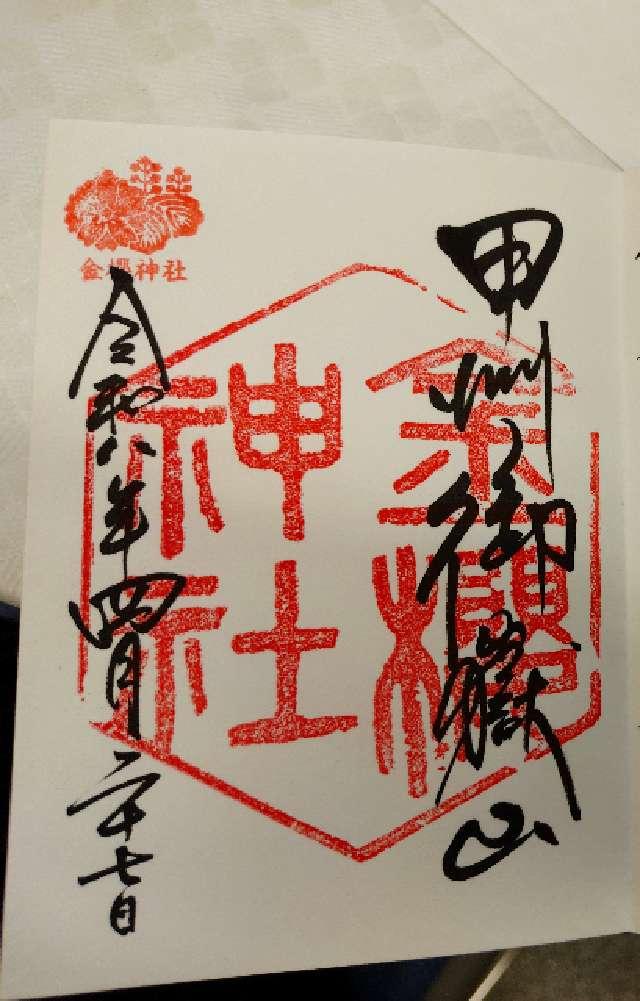 甲州御嶽山
金櫻神社
令和八年四月二十七日
金櫻神社